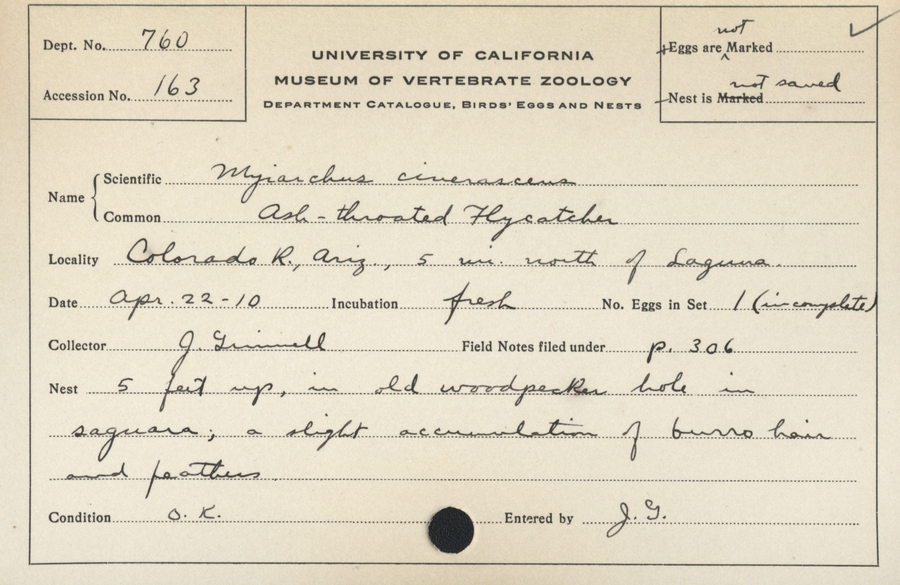 Dept. No. 760
Accession No. 163
UNIVERSITY OF CALIFORNIA
MUSEUM OF VERTEBRATE ZOOLOGY
DEPARTMENT CATALOGUE, BIRDS' EGGS AND NESTS
Eggs are not Marked
Nest is Marked not saved
Name
Scientific Myiarchus cinerascens
Common Ash-throated Flycatcher
Locality Colorado R., Ariz., 5 mi. north of Laguna.
Date Apr. 22-10 Incubation fresh No. Eggs in Set 1 (incomplete)
Collector J. Grinnell Field Notes filed under p. 306
Nest 5 feet up, in old woodpecker hole in
saguara; a slight accumulation of burro hair
and feathers.
Condition O.K. Entered by J.G.